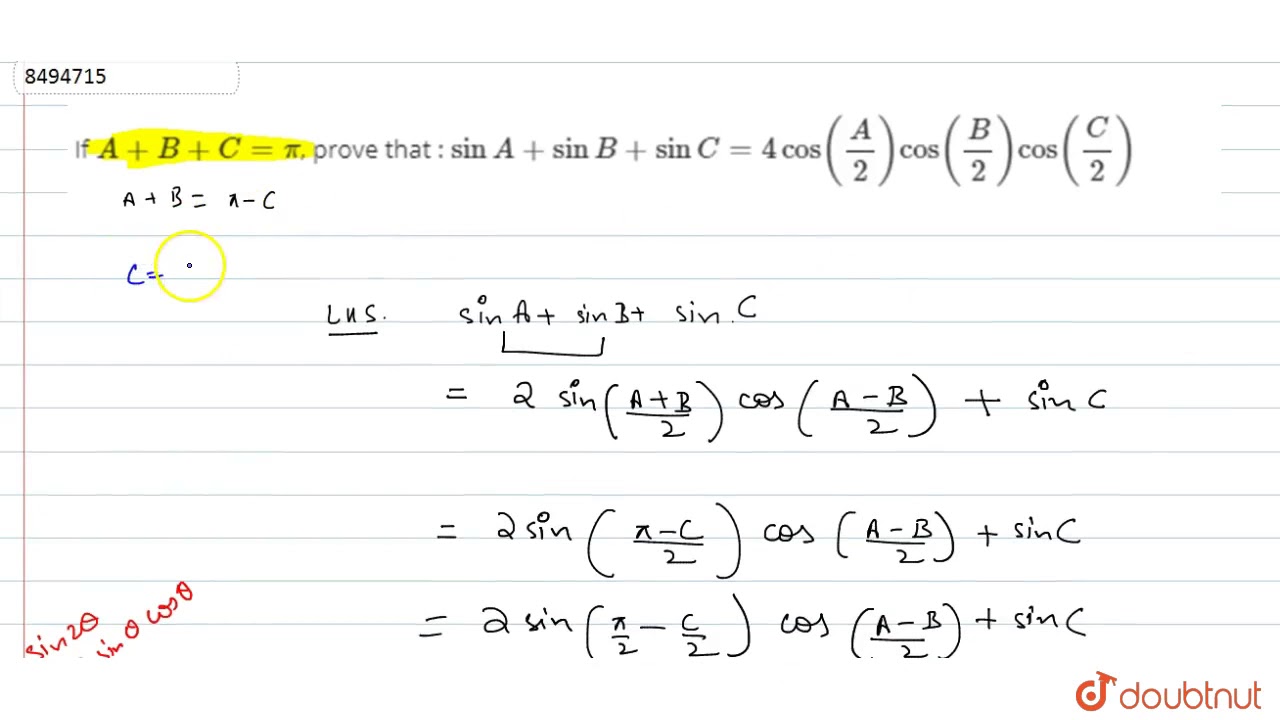 8494715
If A + B + C = π, prove that : sin A + sin B + sin C = 4 cos(A/2) cos(B/2) cos(C/2)
A + B = π - C
C =
LHS. sin A + sin B + sin C
= 2 sin(A + B/2) cos(A - B/2) + sin C
= 2 sin(π - C/2) cos(A - B/2) + sin C
= 2 sin(π/2 - C/2) cos(A - B/2) + sin C
sin 2θ
sin θ cos θ
doubtnut